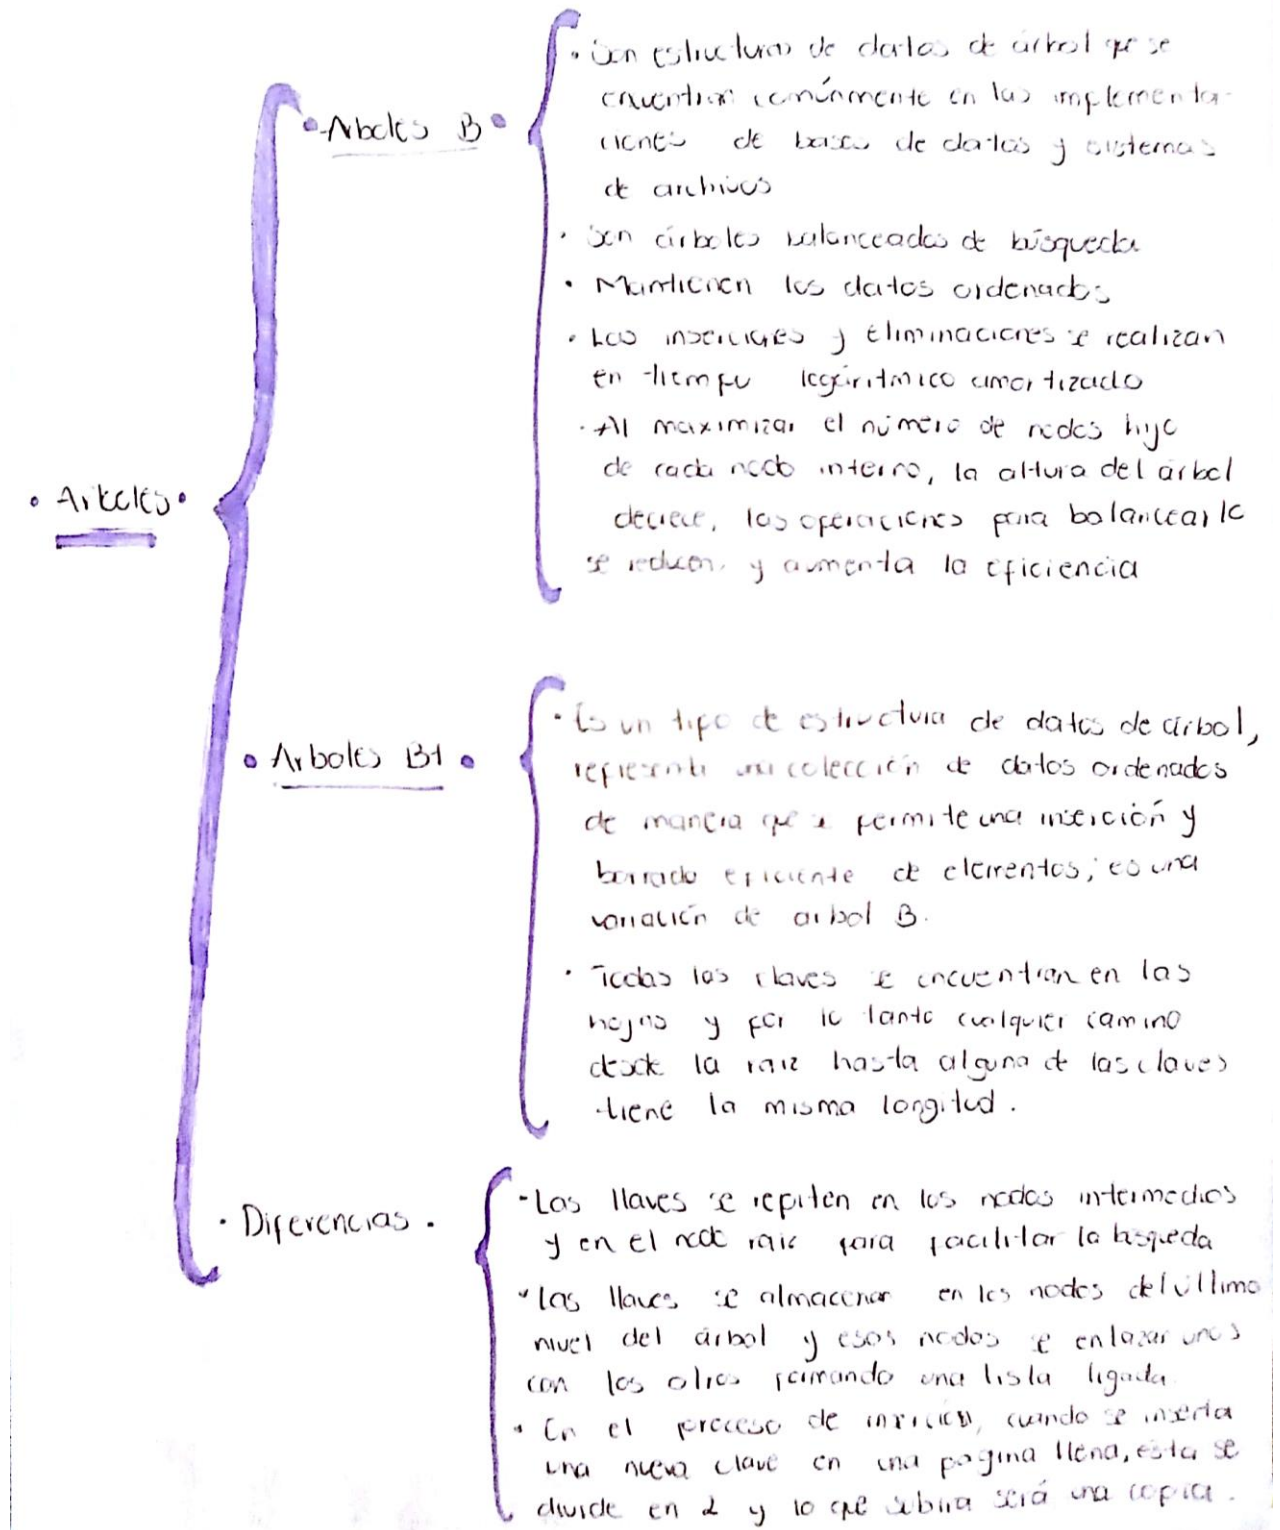 • Arboles •
• Arboles B •
• Son estructuras de datos de árbol que se
encuentran comúnmente en las implementa-
ciones de bases de datos y sistemas
de archivos
• Son árboles balanceados de búsqueda
• Mantienen los datos ordenados
• Las inserciones y eliminaciones se realizan
en tiempo logarítmico amortizado
• Al maximizar el número de nodos hijo
de cada nodo interno, la altura del árbol
decrece, las operaciones para balancearlo
se reducen, y aumenta la eficiencia
• Arboles B+ •
• Es un tipo de estructura de datos de árbol,
representa una colección de datos ordenados
de manera que se permite una inserción y
borrado eficiente de elementos; es una
variación de arbol B.
• Todas las claves se encuentran en las
hojas y por lo tanto cualquier camino
desde la raiz hasta alguna de las claves
tiene la misma longitud.
• Diferencias •
• Las llaves se repiten en los nodos intermedios
y en el nodo raiz para facilitar la búsqueda
• Las llaves se almacenan en los nodos del último
nivel del árbol y esos nodos se enlazan unos
con los otros formando una lista ligada
• En el proceso de inserción, cuando se inserta
una nueva clave en una pagina llena, esta se
divide en 2 y lo que subira será una copia.